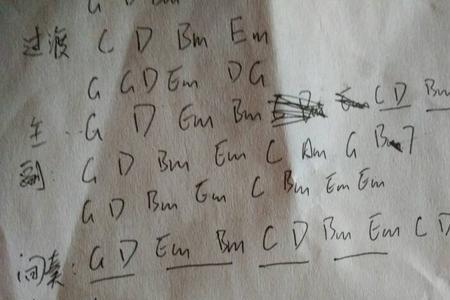 G D Bm
过渡 C D Bm Em
G G D Em D G
主: G D Em Bm C D Bm
副: G D Bm Em C Am G Bm7
G D Bm Em C Bm Em Em
间奏: G D Em Bm C D Bm Em C D